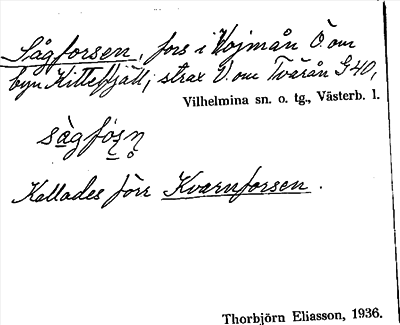 Sågforsen, fors i Vojmån Ö. om
byn Kittelfjäll, strax V. om Tvärån G 40,
Vilhelmina sn. o. tg., Västerb. l.
sågfo̱ṣṇ
Kallades förr Kvarnforsen.
Thorbjörn Eliasson, 1936.